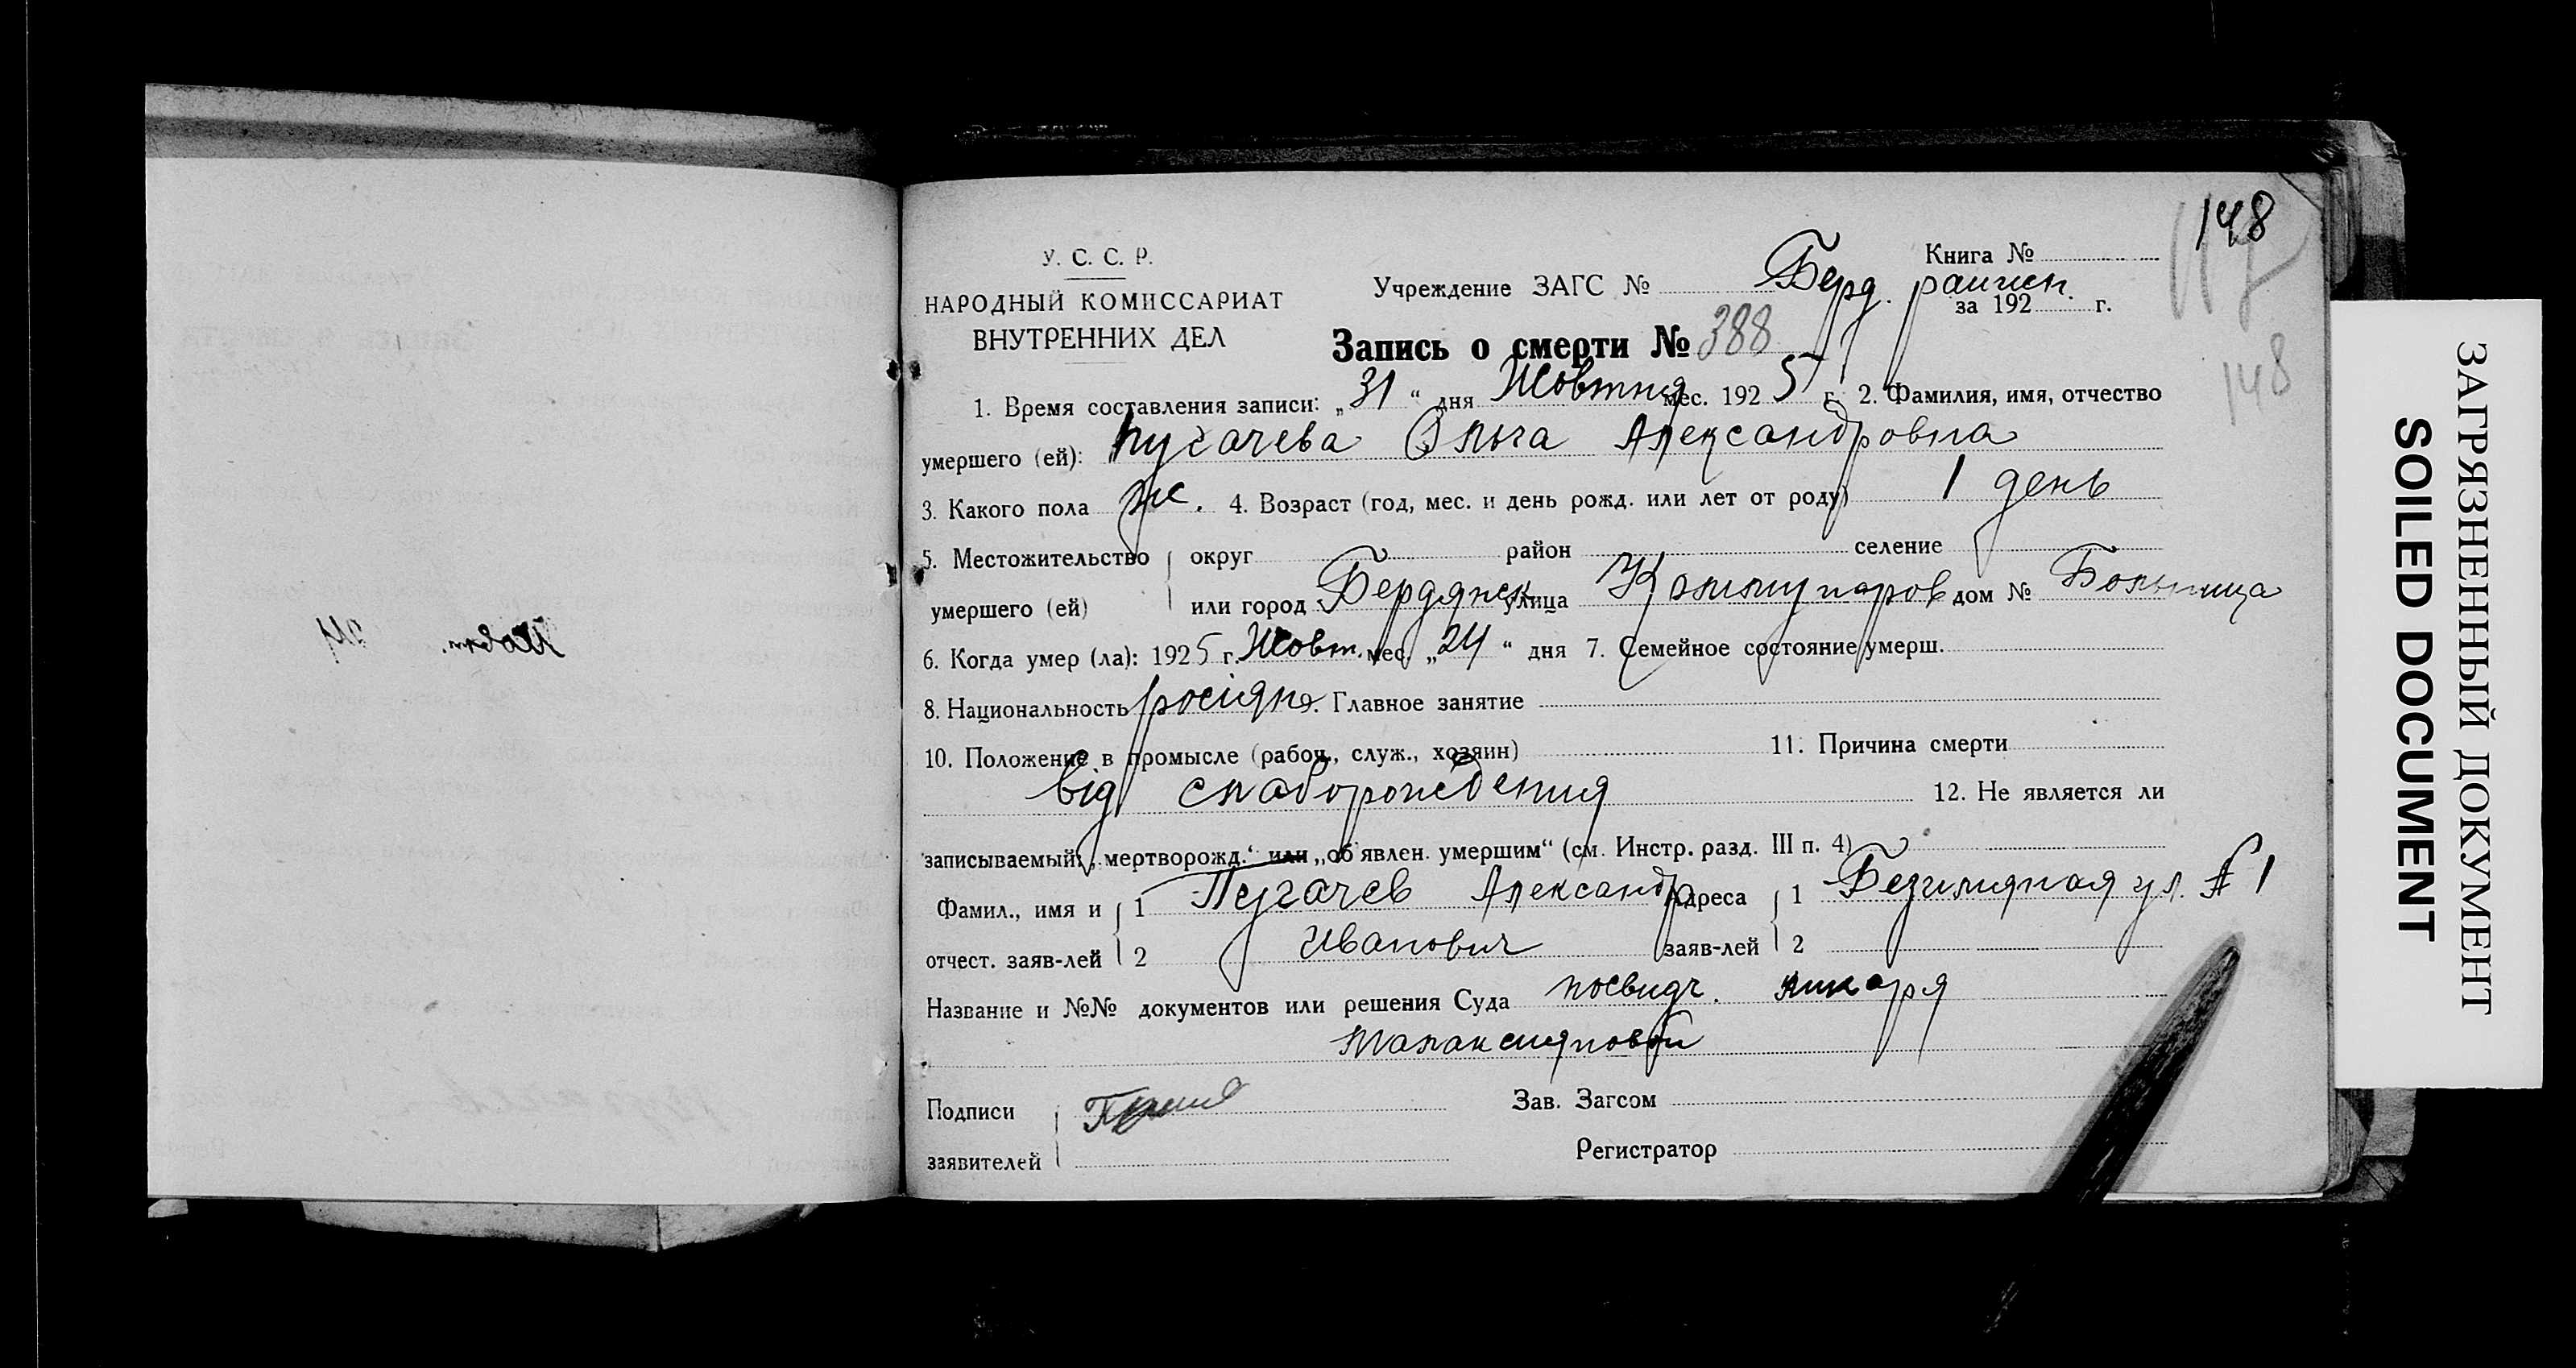 148
148
У. С. С. Р.
НАРОДНЫЙ КОМИССАРИАТ
ВНУТРЕННИХ ДЕЛ
Книга №
Учреждение ЗАГС № Берд.
за 192 г.
Запись о смерти № 388
1. Время составления записи: „31“ дня Жовтня мес. 1925 г. 2. Фамилия, имя, отчество
умершего (ей): Пугачева Ольга Александровна
3. Какого пола ж. 4. Возраст (год, мес. и день рожд. или лет от роду) 1 день
5. Местожительство округ район селение
умершего (ей) или город Бердянск улица Коммунаров дом № Больница
6. Когда умер (ла): 1925 г. Жовт. мес. „24“ дня 7. Семейное состояние умерш.
8. Национальность росіян 9. Главное занятие
10. Положение в промысле (рабоч., служ., хозяин) 11. Причина смерти
від слаборождения 12. Не является ли
записываемый: „мертворожд.“ или „об'явлен. умершим“ (см. Инстр. разд. III п. 4)
Фамил., имя и 1 Пугачев Александр Адреса 1 Безимяная ул. № 1
отчест. заяв-лей 2 Иванович заяв-лей 2
Название и №№ документов или решения Суда посвидч. ликаря
Подписи Зав. Загсом
заявителей Регистратор
ЗАГРЯЗНЕННЫЙ ДОКУМЕНТ
SOILED DOCUMENT